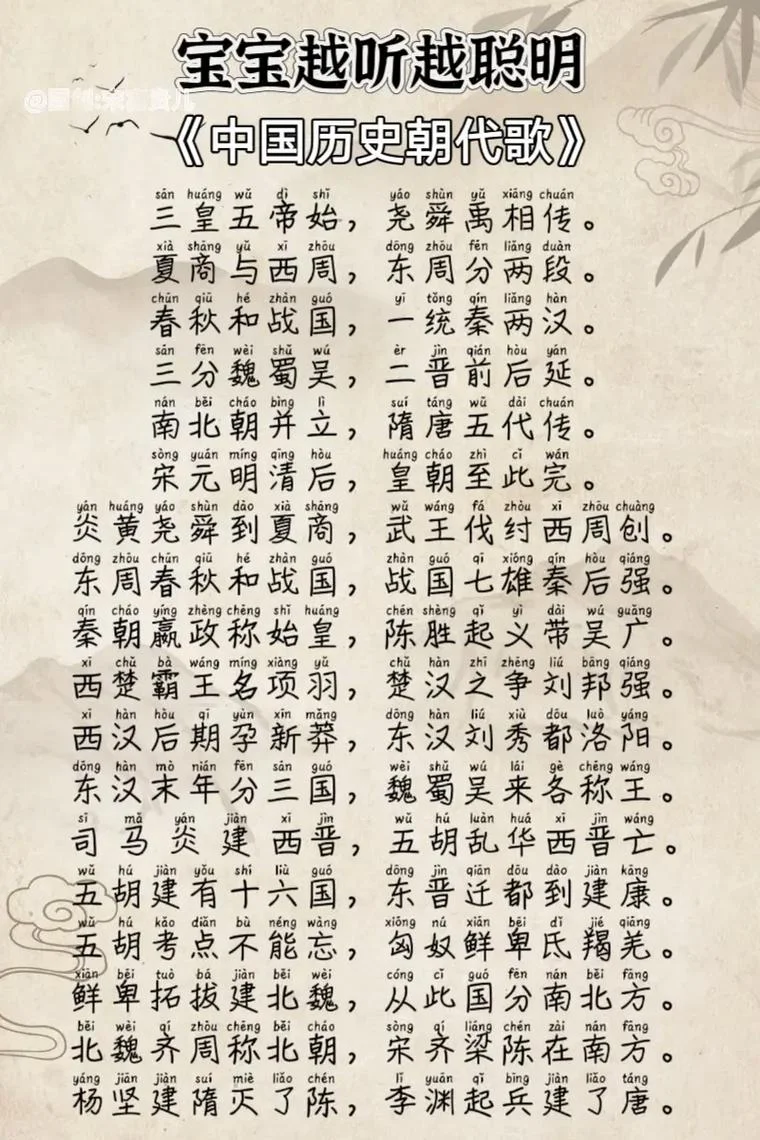 宝宝越听越聪明
《中国历史朝代歌》
sān huáng wǔ dì shǐ yáo shùn yǔ xiāng chuán
三皇五帝始，尧舜禹相传。
xià shāng yǔ xī zhōu dōng zhōu fēn liǎng duàn
夏商与西周，东周分两段。
chūn qiū hé zhàn guó yī tǒng qín liǎng hàn
春秋和战国，一统秦两汉。
sān fēn wèi shǔ wú èr jìn qián hòu yán
三分魏蜀吴，二晋前后延。
nán běi cháo bìng lì suí táng wǔ dài chuán
南北朝并立，隋唐五代传。
sòng yuán míng qīng hòu huáng cháo zhì cǐ wán
宋元明清后，皇朝至此完。
yán huáng yáo shùn dào xià shāng wǔ wáng fá zhòu xī zhōu chuàng
炎黄尧舜到夏商，武王伐纣西周创。
dōng zhōu chūn qiū hé zhàn guó zhàn guó qī xióng qín hòu qiáng
东周春秋和战国，战国七雄秦后强。
qín cháo yíng zhèng chēng shǐ huáng chén shèng qǐ yì dài wú guǎng
秦朝嬴政称始皇，陈胜起义带吴广。
xī chǔ bà wáng míng xiàng yǔ chǔ hàn zhī zhēng liú bāng qiáng
西楚霸王名项羽，楚汉之争刘邦强。
xī hàn hòu qī yùn xīn mǎng dōng hàn liú xiù dōu luò yáng
西汉后期孕新莽，东汉刘秀都洛阳。
dōng hàn mò nián fēn sān guó wèi shǔ wú lái gè chēng wáng
东汉末年分三国，魏蜀吴来各称王。
sī mǎ yán jiàn xī jìn wǔ hú luàn huá xī jìn wáng
司马炎建西晋，五胡乱华西晋亡。
wǔ hú jiàn yǒu shí liù guó dōng jìn qiān dōu dào jiàn kāng
五胡建有十六国，东晋迁都到建康。
wǔ hú kǎo diǎn bù néng wàng xiōng nú xiān bēi dī jié qiāng
五胡考点不能忘，匈奴鲜卑氐羯羌。
xiān bēi tuò bá jiàn běi wèi cóng cǐ guó fēn nán běi fāng
鲜卑拓拔建北魏，从此国分南北方。
běi wèi qí zhōu chēng běi cháo sòng qí liáng chén zài nán fāng
北魏齐周称北朝，宋齐梁陈在南方。
yáng jiān jiàn suí miè liǎo chén lǐ yuān qǐ bīng jiàn liǎo táng
杨坚建隋灭了陈，李渊起兵建了唐。